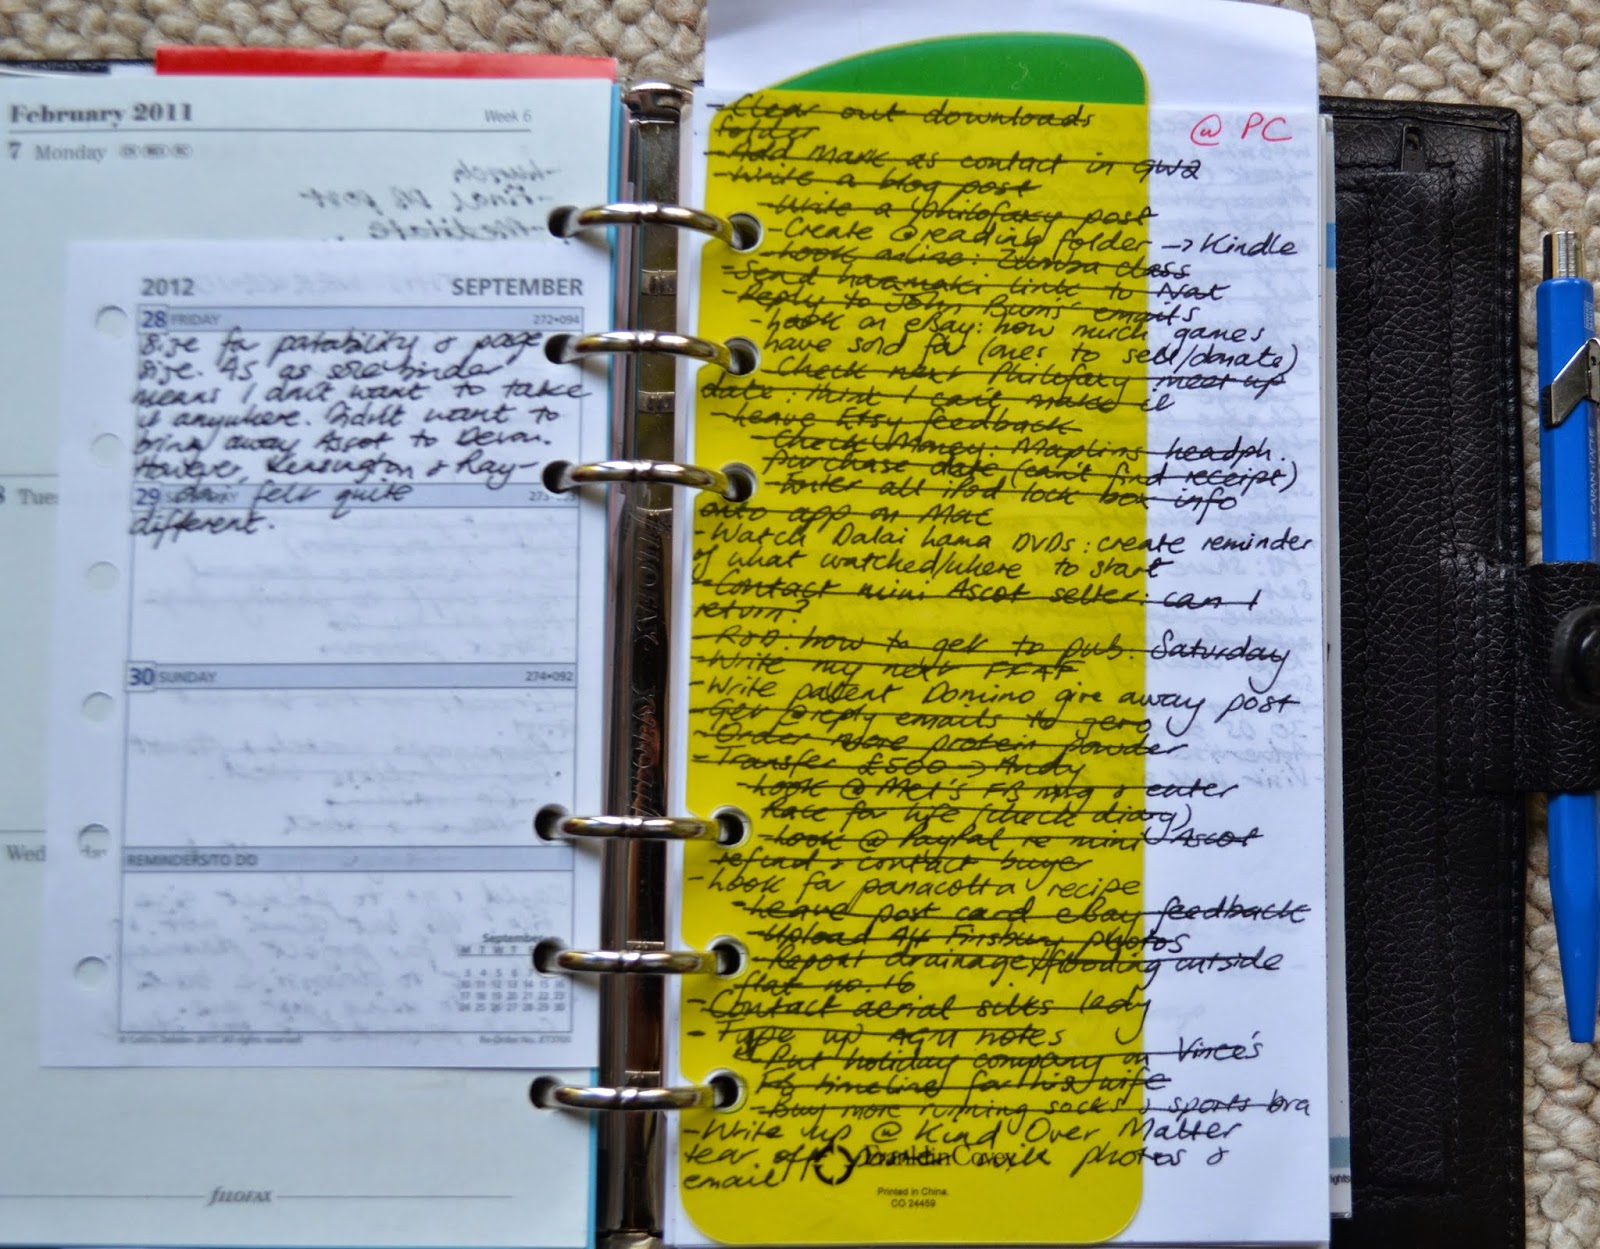 February 2011
Week 6
7 Monday
2012 SEPTEMBER
28 FRIDAY 272•094
Size for portability & page
size. As as
means I don't want to take
it anywhere. Didn't want to
bring away Ascot to Devon.
However, Kensington & Ray-
29 felt quite
different.
30 SUNDAY 274•092
REMINDERS/TO DO
September
M T W T
8 Tues
Wed
fILOFAX
@ PC
- Clear out downloads
folder
- Add Mark as contact in GW2
- Write a blog post
- Write a Philofaxy post
- Create @reading folder → Kindle
- Look online: Zumba class
- Send link to Nat
- Reply to John emails
- Look on eBay: how much games
have sold for (ones to sell/donate)
- Check next Philofaxy meet up
date: think I can't make it
- Leave Etsy feedback
- Check Maplins headph.
purchase date (can't find receipt)
- Enter all iPod lock box info
onto app on Mac
- Watch Dalai Lama DVDs: create reminder
of what watched/where to start
- Contact mini Ascot seller: can I
return?
- how to get to pub: Saturday
- Write my next FFAF
- Write patent Domino give away post
- Get @reply emails to zero
- Order more protein powder
- Transfer £500 → Andy
- Look @ Mel's FB msg & enter
Race for life (check diary)
- Look @ PayPal re mini Ascot
refund & contact buyer
- Look for panacotta recipe
- Leave post card eBay feedback
- Upload Finsbury photos
- Report drainage/flooding outside
flat no. 16
- Contact aerial silks lady
- Type up AGM notes
- Put holiday company on Vince's
FB timeline for his wife
- Buy more running socks & sports bra
- Write up @ Kind Over Matter
tear off photos &
email
FranklinCovey
Printed in China.
CO 24459